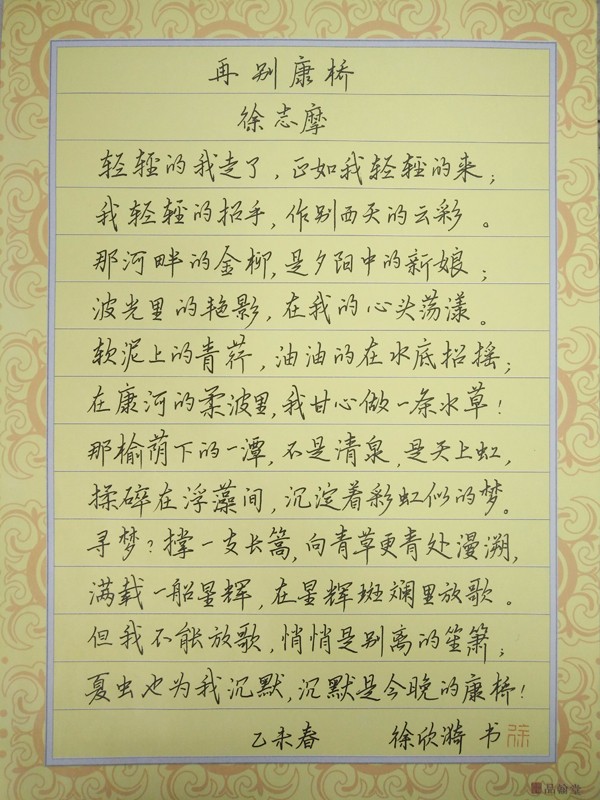 再别康桥
徐志摩
轻轻的我走了，正如我轻轻的来；
我轻轻的招手，作别西天的云彩。
那河畔的金柳，是夕阳中的新娘；
波光里的艳影，在我的心头荡漾。
软泥上的青荇，油油的在水底招摇；
在康河的柔波里，我甘心做一条水草！
那榆荫下的一潭，不是清泉，是天上虹，
揉碎在浮藻间，沉淀着彩虹似的梦。
寻梦？撑一支长篙，向青草更青处漫溯，
满载一船星辉，在星辉斑斓里放歌。
但我不能放歌，悄悄是别离的笙箫；
夏虫也为我沉默，沉默是今晚的康桥！
乙未春 徐欣漪 书 徐
品翰堂